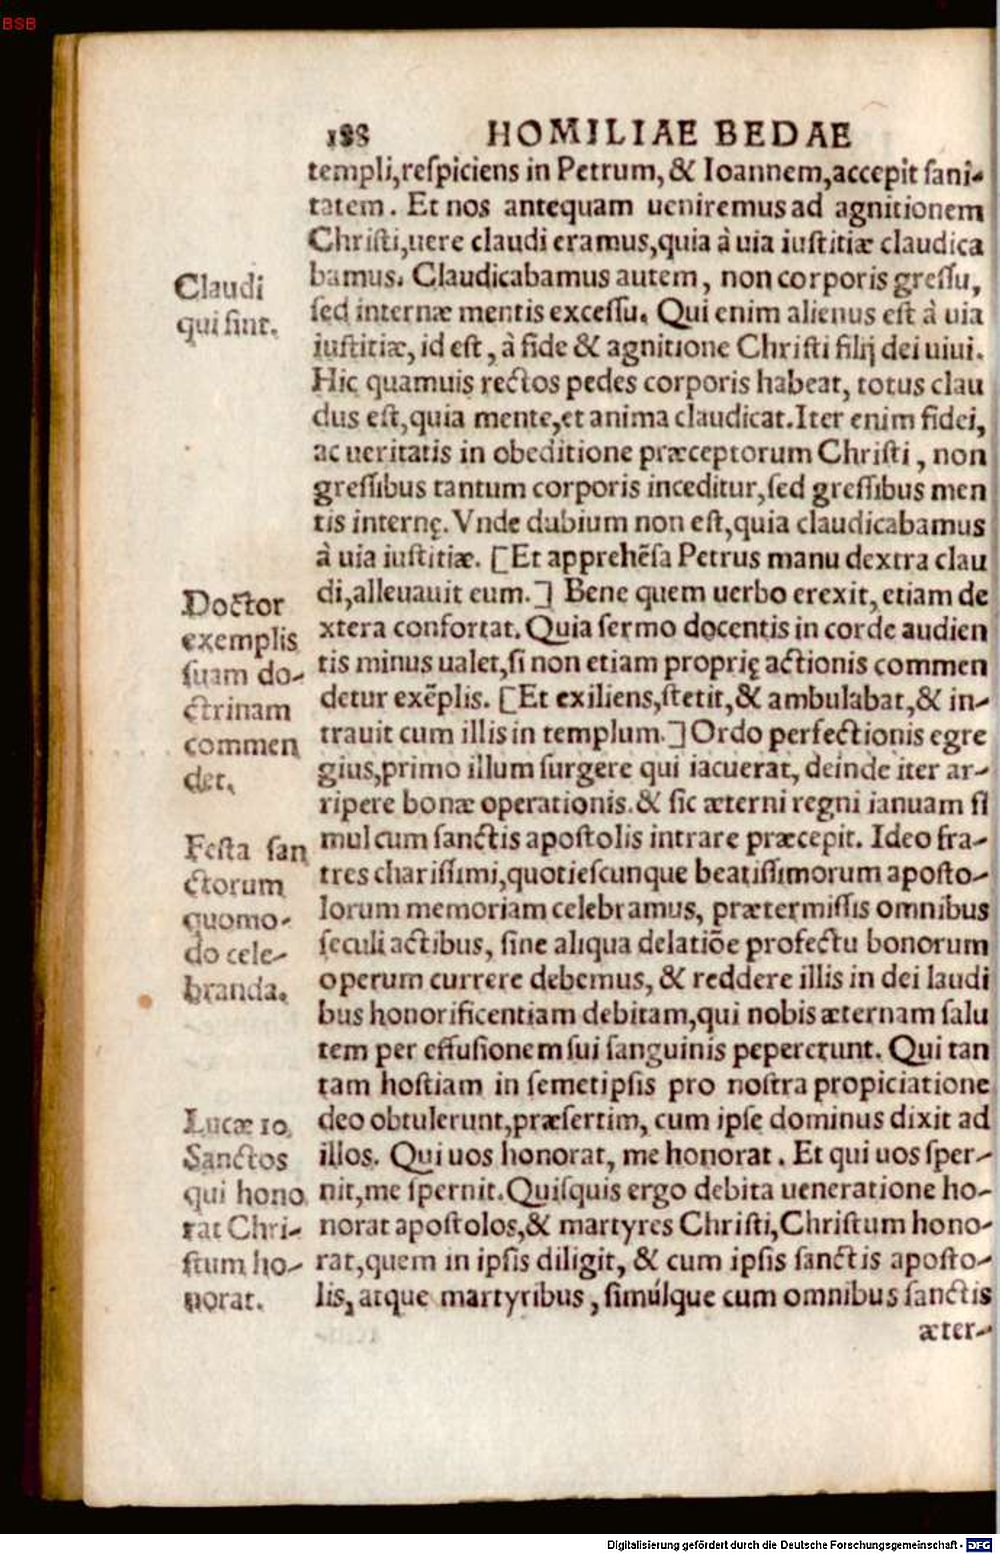 BSB
188 HOMILIAE BEDAE
templi,respiciens in Petrum, & Ioannem,accepit sani-
tatem. Et nos antequam ueniremus ad agnitionem
Christi,uere claudi eramus,quia à uia iustitiæ claudica
bamus. Claudicabamus autem, non corporis gressu,
sed internæ mentis excessu. Qui enim alienus est à uia
iustitiæ, id est, à fide & agnitione Christi filij dei uiui.
Hic quamuis rectos pedes corporis habeat, totus clau
dus est,quia mente,et anima claudicat.Iter enim fidei,
ac ueritatis in obeditione præceptorum Christi, non
gressibus tantum corporis inceditur,sed gressibus men
tis internę. Vnde dubium non est,quia claudicabamus
à uia iustitiæ. [Et apprehēsa Petrus manu dextra clau
di,alleuauit eum.] Bene quem uerbo erexit, etiam de
xtera confortat. Quia sermo docentis in corde audien
tis minus ualet,si non etiam proprię actionis commen
detur exēplis. [Et exiliens,stetit,& ambulabat,& in-
trauit cum illis in templum.] Ordo perfectionis egre
gius,primo illum surgere qui iacuerat, deinde iter ar-
ripere bonæ operationis.& sic æterni regni ianuam si
mul cum sanctis apostolis intrare præcepit. Ideo fra-
tres charissimi,quotiescunque beatissimorum aposto-
lorum memoriam celebramus, prætermissis omnibus
seculi actibus, sine aliqua delatiōe profectu bonorum
operum currere debemus, & reddere illis in dei laudi
bus honorificentiam debitam,qui nobis æternam salu
tem per effusionem sui sanguinis pepererunt. Qui tan
tam hostiam in semetipsis pro nostra propiciatione
deo obtulerunt,præsertim, cum ipse dominus dixit ad
illos. Qui uos honorat, me honorat. Et qui uos sper-
nit,me spernit. Quisquis ergo debita ueneratione ho-
norat apostolos,& martyres Christi,Christum hono-
rat,quem in ipsis diligit, & cum ipsis sanctis aposto-
lis, atque martyribus, simúlque cum omnibus sanctis
æter-
Claudi
qui sint.
Doctor
exemplis
suam do-
ctrinam
commen
det.
Festa san
ctorum
quomo-
do cele-
branda.
Lucæ 10.
Sanctos
qui hono
rat Chri-
stum ho-
norat.
Digitalisierung gefördert durch die Deutsche Forschungsgemeinschaft - DFG